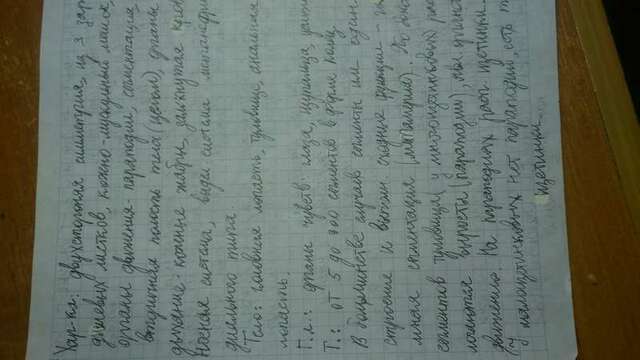 Хар-ка: двухсторонняя симметрия, из 3 зар
дышевых листков, кожно-мускульный мешок,
органы движения - параподии, сегментация,
вторичная полость тела (целом), органы
дыхания: кожные жабры, замкнутая кров
носная система, выдел. система метанефри
диального типа
Тело: головная лопасть, туловище, анальная
лопасть.
Г.л.: органы чувств: глаза, щупальца, усики
Т.: от 5 до 800 сегментов в форме колец
В большинстве случаев сегменты им. один
строение и выполн. сходные функции -
мная сегментация (метамерия). По бокам
сегментов туловища у многощетинковых рас
полагаются выросты (параподии),
движению. На параподиях расп. щетинки.
у малощетинковых нет параподий, есть т
щетинки.